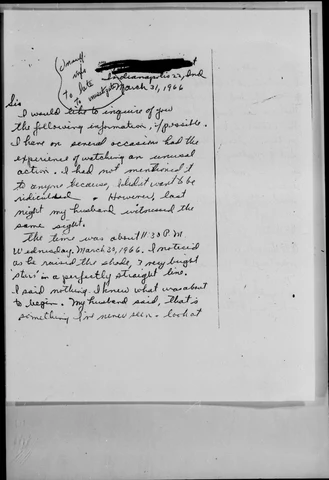 insuff.
info
To late
To investigate
Indianapolis 22, Ind
March 31, 1966
Sir
I would like to inquire of you
the following information, if possible.
I have on several occasions had the
experience of watching an unusual
action. I had not mentioned it
to anyone because, I didn't want to be
ridiculed. However, last
night my husband witnessed the
same sight.
The time was about 11:30 P.M.
Wednesday, March 30, 1966. I noticed
as he raised the shade, 7 very bright
"stars" in a perfectly straight line.
I said nothing. I knew what was about
to begin. My husband said, that is
something I've never seen. Look at